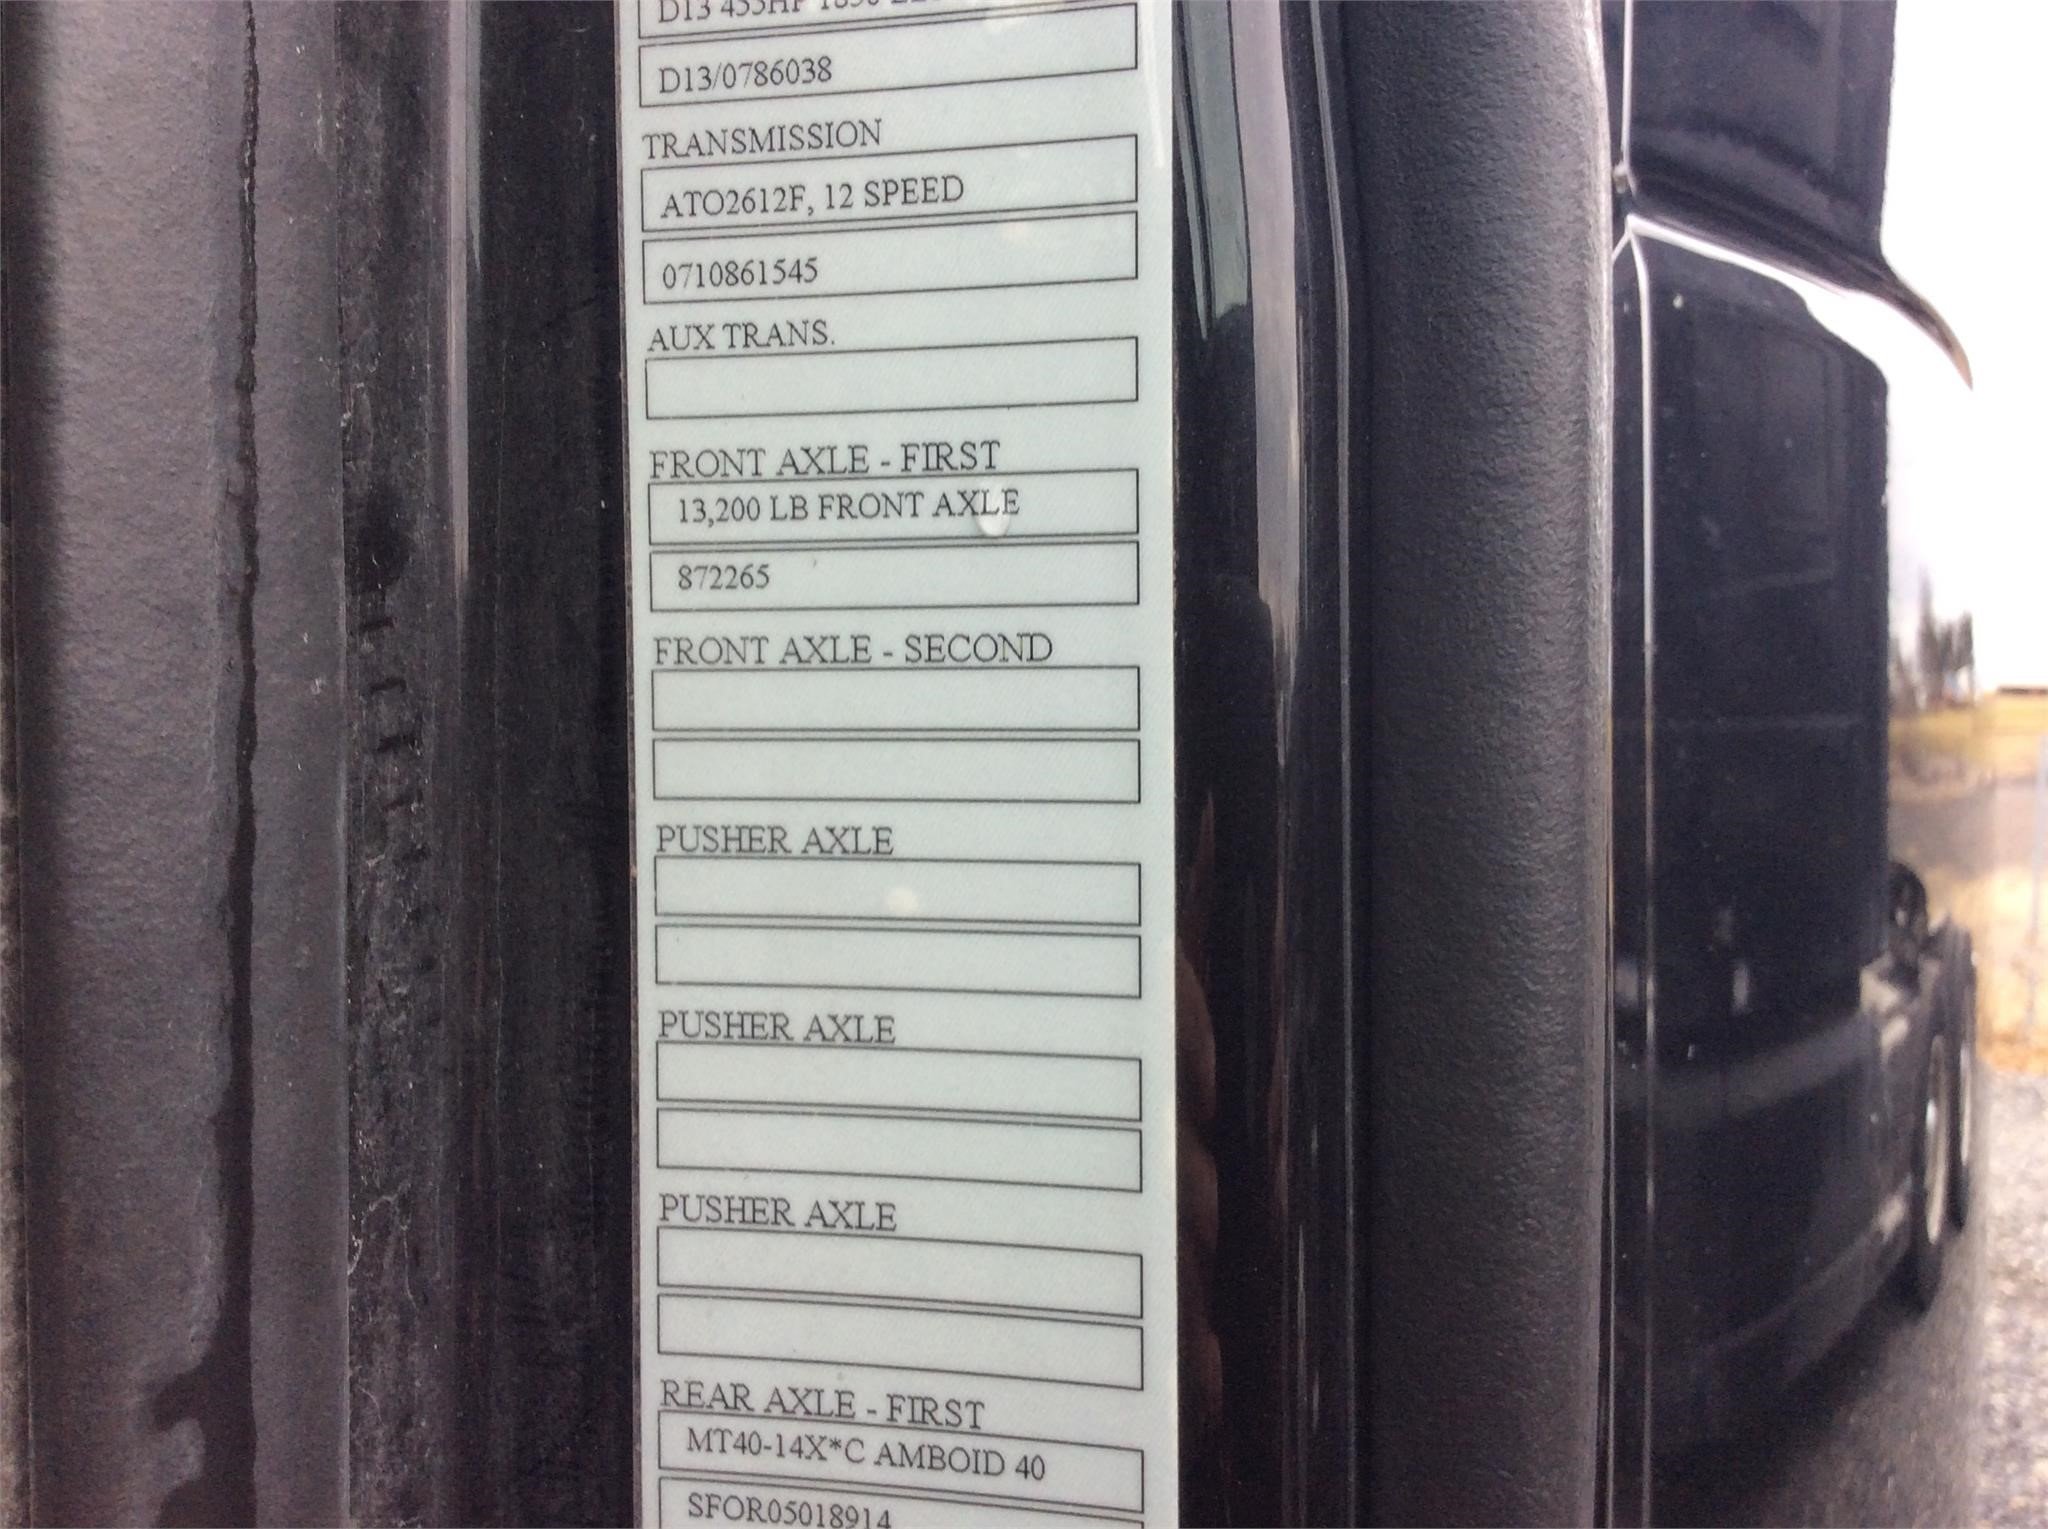 D13 455HP 1850
D13/0786038
TRANSMISSION
ATO2612F, 12 SPEED
0710861545
AUX TRANS.
FRONT AXLE - FIRST
13,200 LB FRONT AXLE
872265
FRONT AXLE - SECOND
PUSHER AXLE
PUSHER AXLE
PUSHER AXLE
REAR AXLE - FIRST
MT40-14X*C AMBOID 40
SFOR05018914